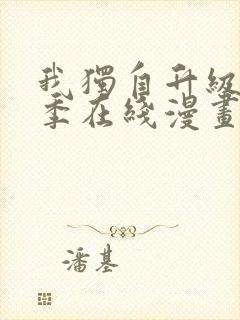 我獨自升級
季在綫漫畫
潘基